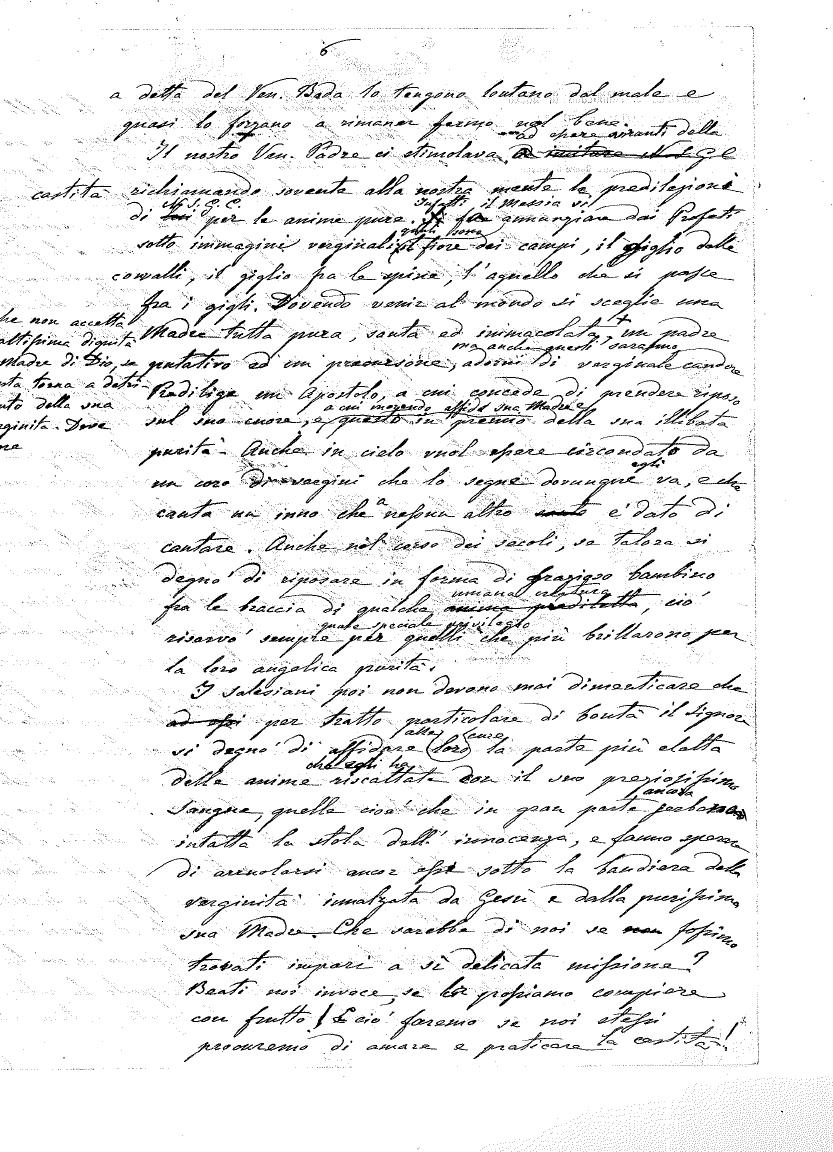 6
a detta del Ven. Beda lo tengono lontano dal male e
quasi lo forzano a rimaner fermo nel bene.
ad essere amanti della
Il nostro Ven. Padre ci stimolava a imitare N.S.G.C
castità richiamando sovente alla nostra mente le predilezioni
N.S.G.C. Infatti il Messia si
di per le anime pure. fa annunziare dai Profeti
quali sono
sotto immagini verginali il fiore dei campi, il giglio delle
convalli, il giglio fra le spine, l'agnello che si pasce
fra i gigli. Dovendo venir al mondo si sceglie una
Madre tutta pura, santa ed immacolata, + un padre
ma anche questi saranno
putativo ed un precursore, adorni di verginale candore
che non accetta
altissima dignità
Madre di Dio, se
questa torna a detri-
mento della sua
verginità. Dove
Predilige un Apostolo, a cui concede di prendere riposo
a cui morendo affida sua Madre e
sul suo cuore, e questo in premio della sua illibata
purità. Anche in cielo vuol essere circondato da
egli
un coro di vergini che lo segue dovunque va, e che
a
canta un inno che nessun altro è dato di
cantare. Anche nel corso dei secoli, se talora si
degnò di riposare in forma di grazioso bambino
umana creatura
fra le braccia di qualche anima prediletta, ciò
quale speciale privilegio
riservò sempre per quelli che più brillarono per
la loro angelica purità.
I Salesiani poi non devono mai dimenticare che
ad essi per tratto particolare di bontà il Signore
alle cure
si degnò di affidare loro la parte più eletta
che egli ha
delle anime riscattate con il suo preziosissimo
ancora
Sangue, quelle cioè che in gran parte serbano
intatta la stola dell'innocenza, e fanno sperare
di arruolarsi ancor esse sotto la bandiera della
verginità innalzata da Gesù e dalla purissima
sua Madre. Che sarebbe di noi se non fossimo
trovati impari a sì delicata missione?
Beati noi invece, se la possiamo compiere
con frutto! E ciò faremo se noi stessi
procuremo di amare e praticare la castità!